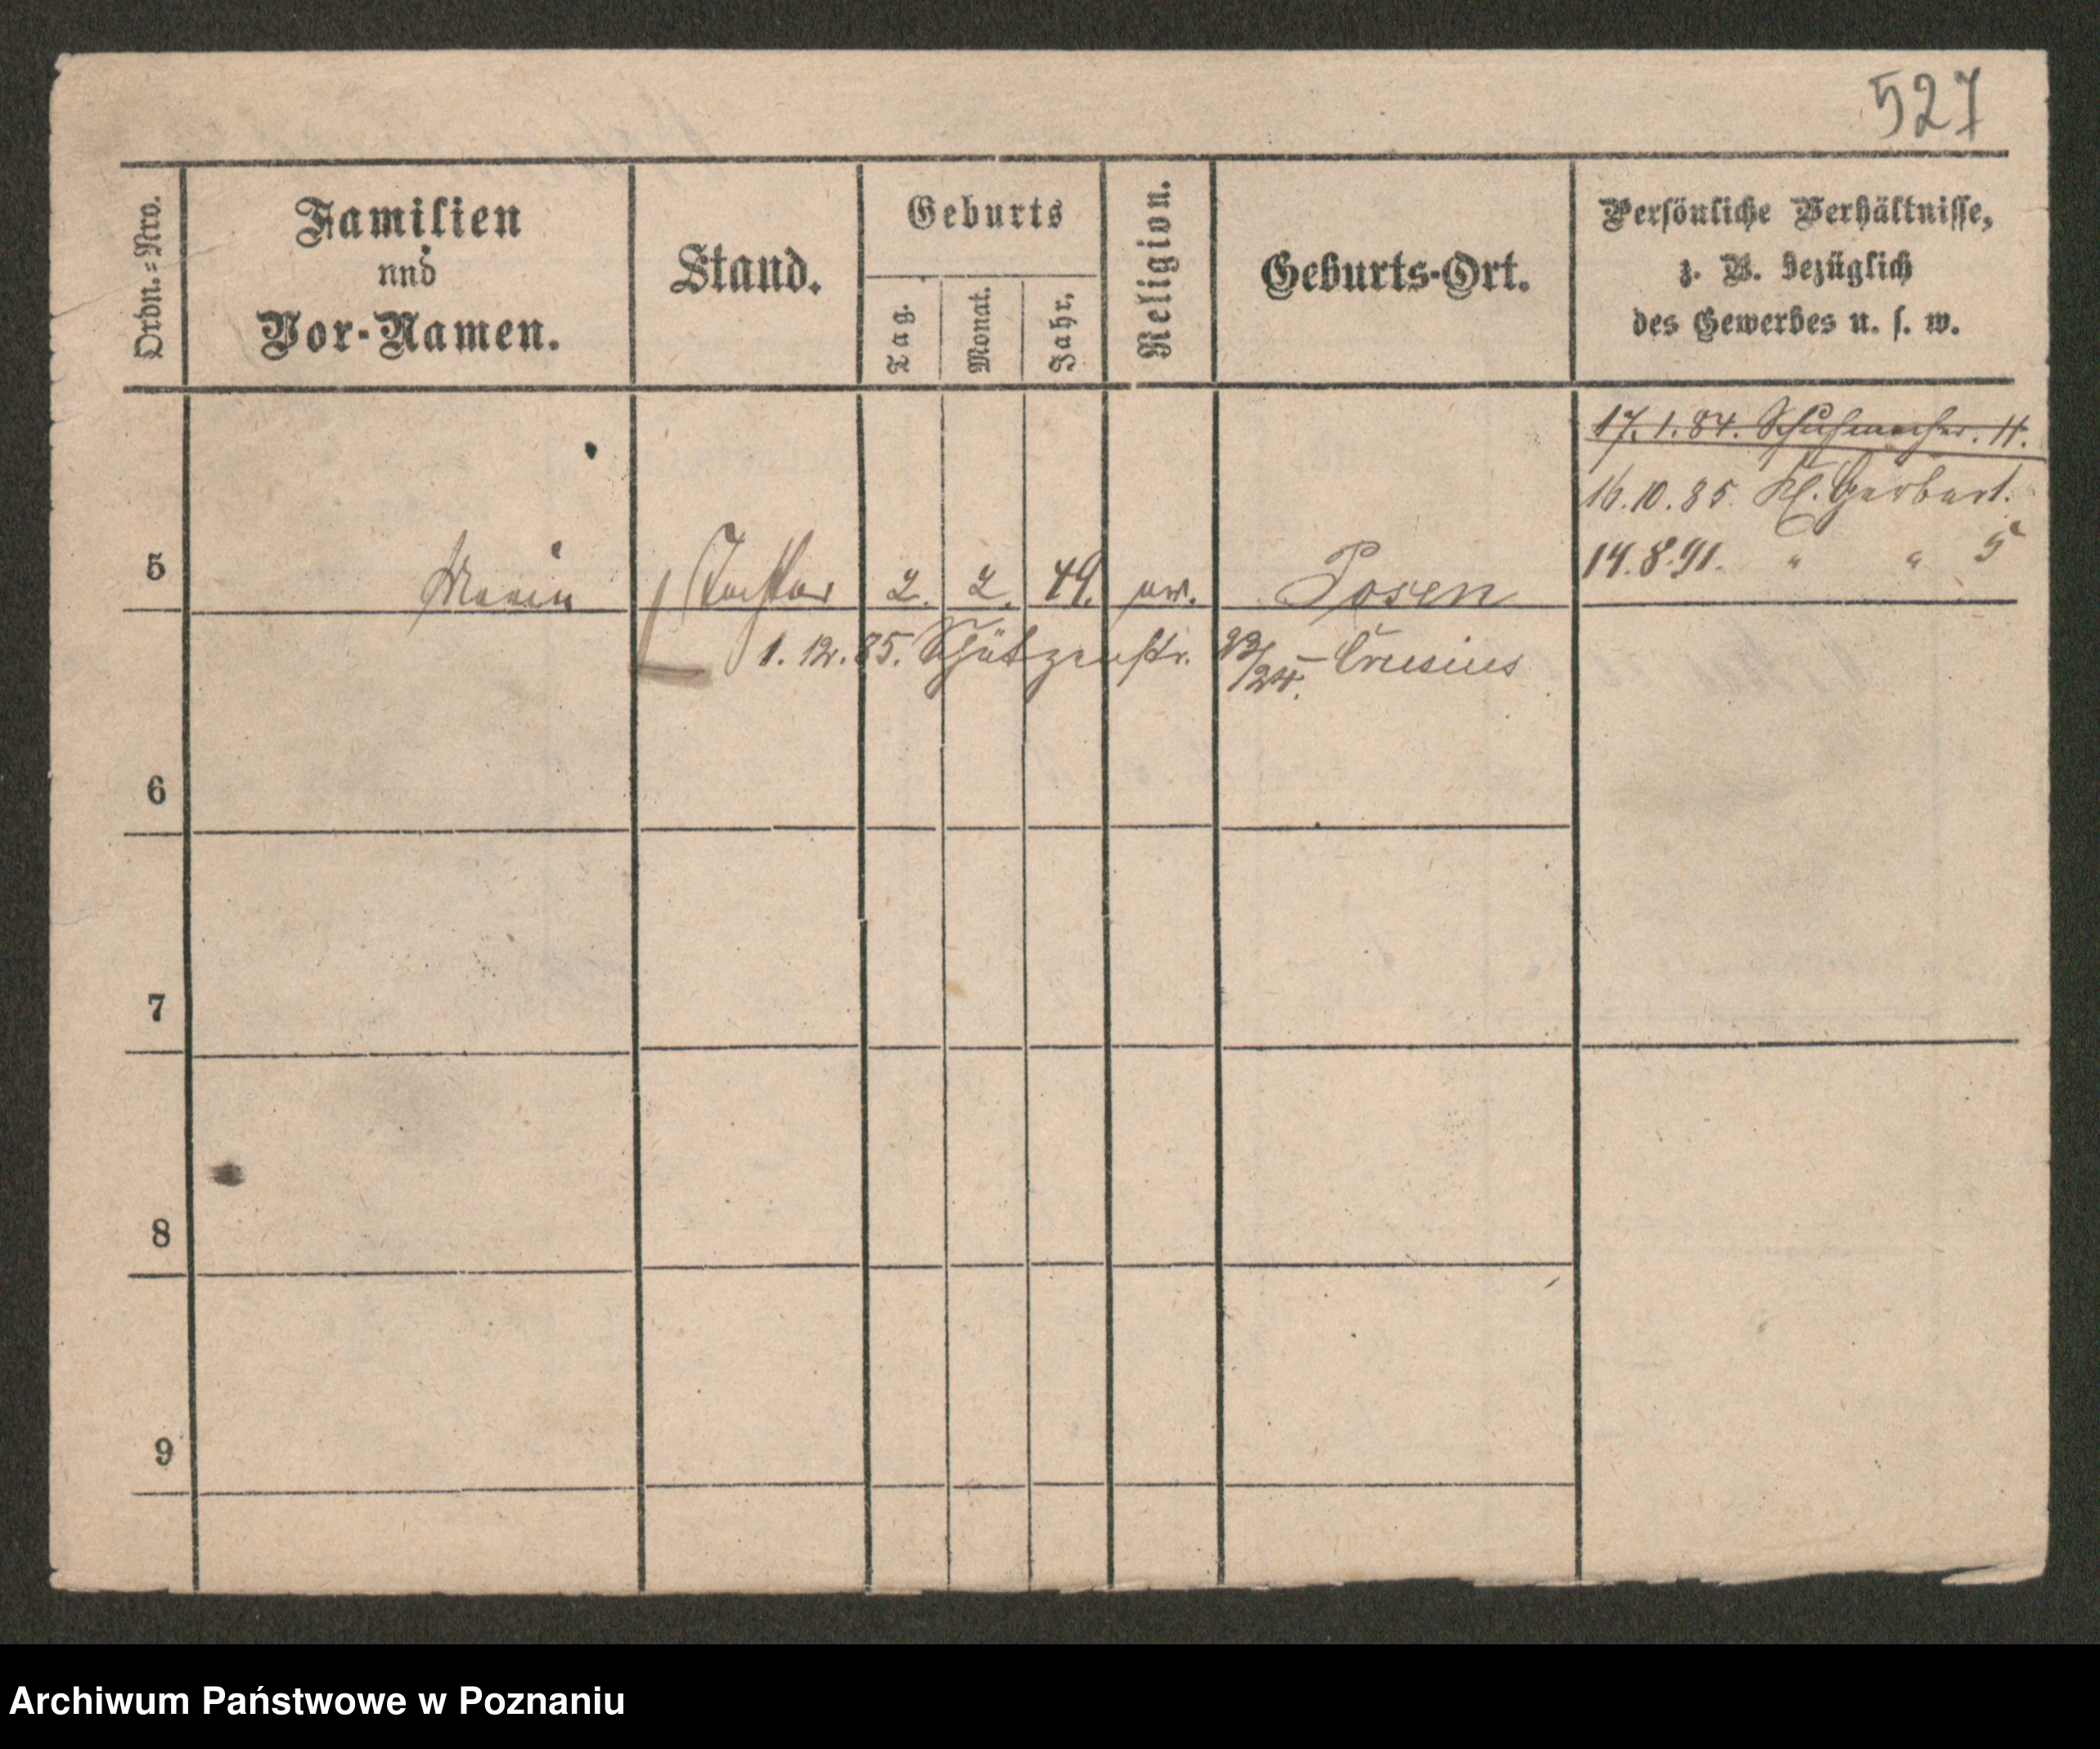 527
Ordn.=Nro.
Familien
und
Vor-Namen.
Stand.
Geburts
Tag.
Monat.
Jahr.
Religion.
Geburts-Ort.
Persönliche Verhältnisse,
z. B. bezüglich
des Gewerbes u. s. w.
17. 1. 84. Schuhmacher. 11.
16. 10. 85. Kl. Gerberst.
14. 8. 91. " " 5
5 Maria Tochter 2. 2. 49. Posen
1. 12. 85. Schützenstr. 23/24. Crusius
6
7
8
9
Archiwum Państwowe w Poznaniu